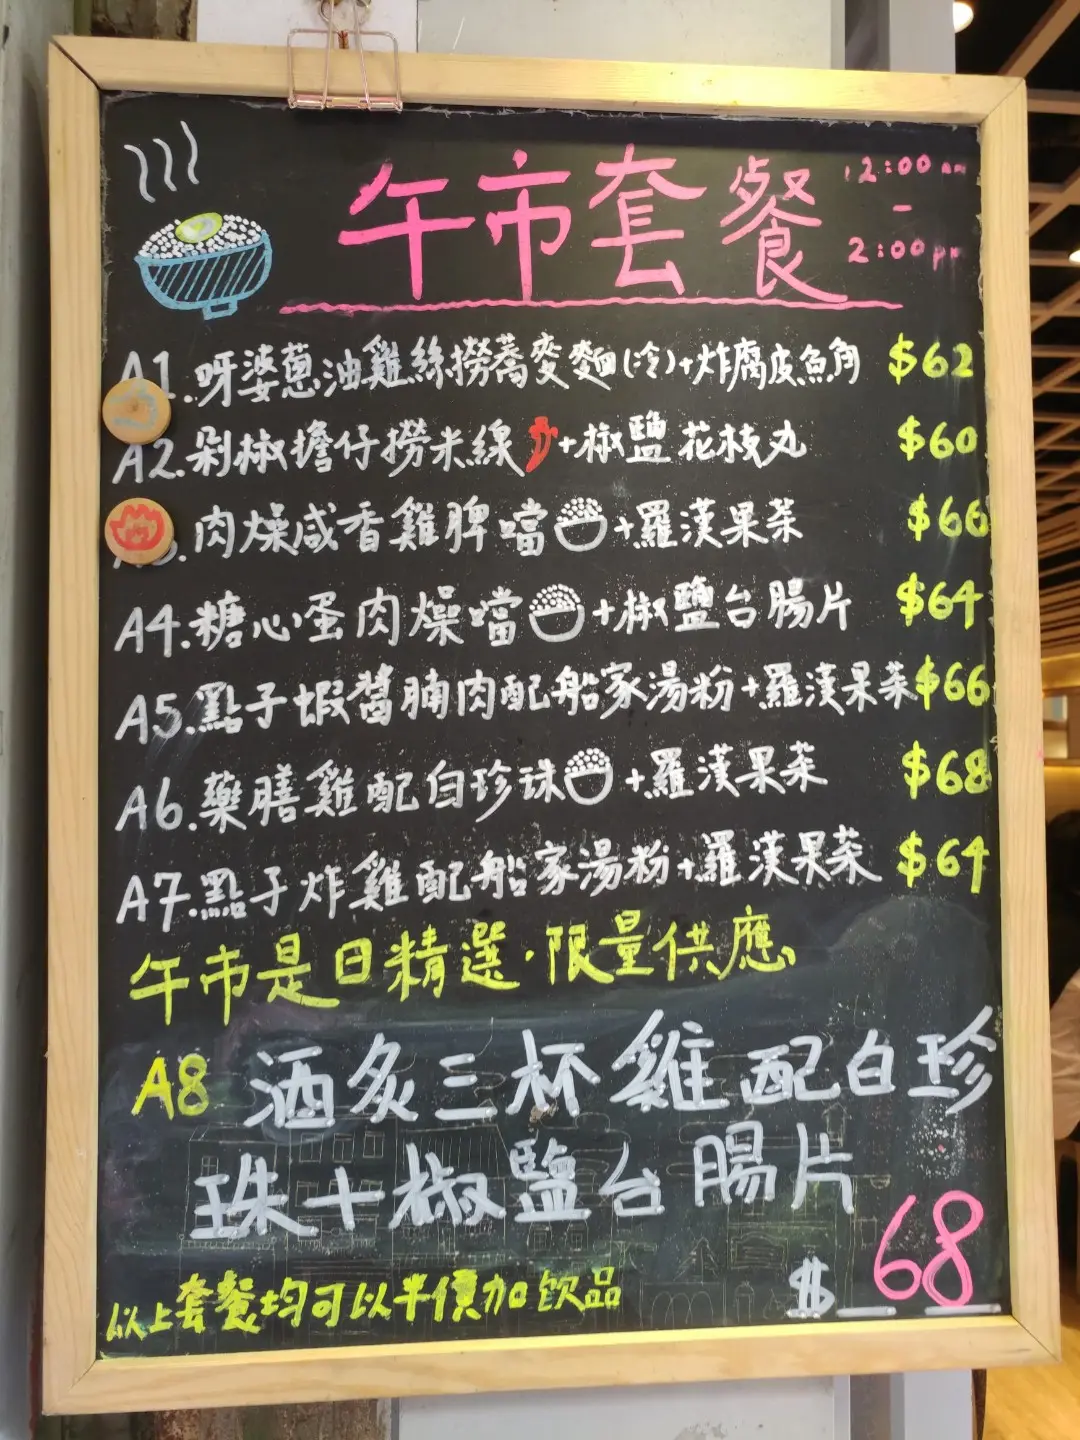 午市套餐
12:00 am
-
2:00 pm
A1.呀婆蔥油雞絲撈蕎麥麵(冷)+炸腐皮魚角 $62
A2.剁椒擔仔撈米線+椒鹽花枝丸 $60
肉燥咸香雞脾噹+羅漢果茶 $66
A4.糖心蛋肉燥噹+椒鹽台腸片 $64
A5.點子蝦醬腩肉配船家湯粉+羅漢果茶 $66
A6.藥膳雞配白珍珠+羅漢果茶 $68
A7.點子炸雞配船家湯粉+羅漢果茶 $64
午市是日精選·限量供應
A8 洒炙三杯雞配白珍
珠+椒鹽台腸片
$68
以上套餐均可以半價加飲品